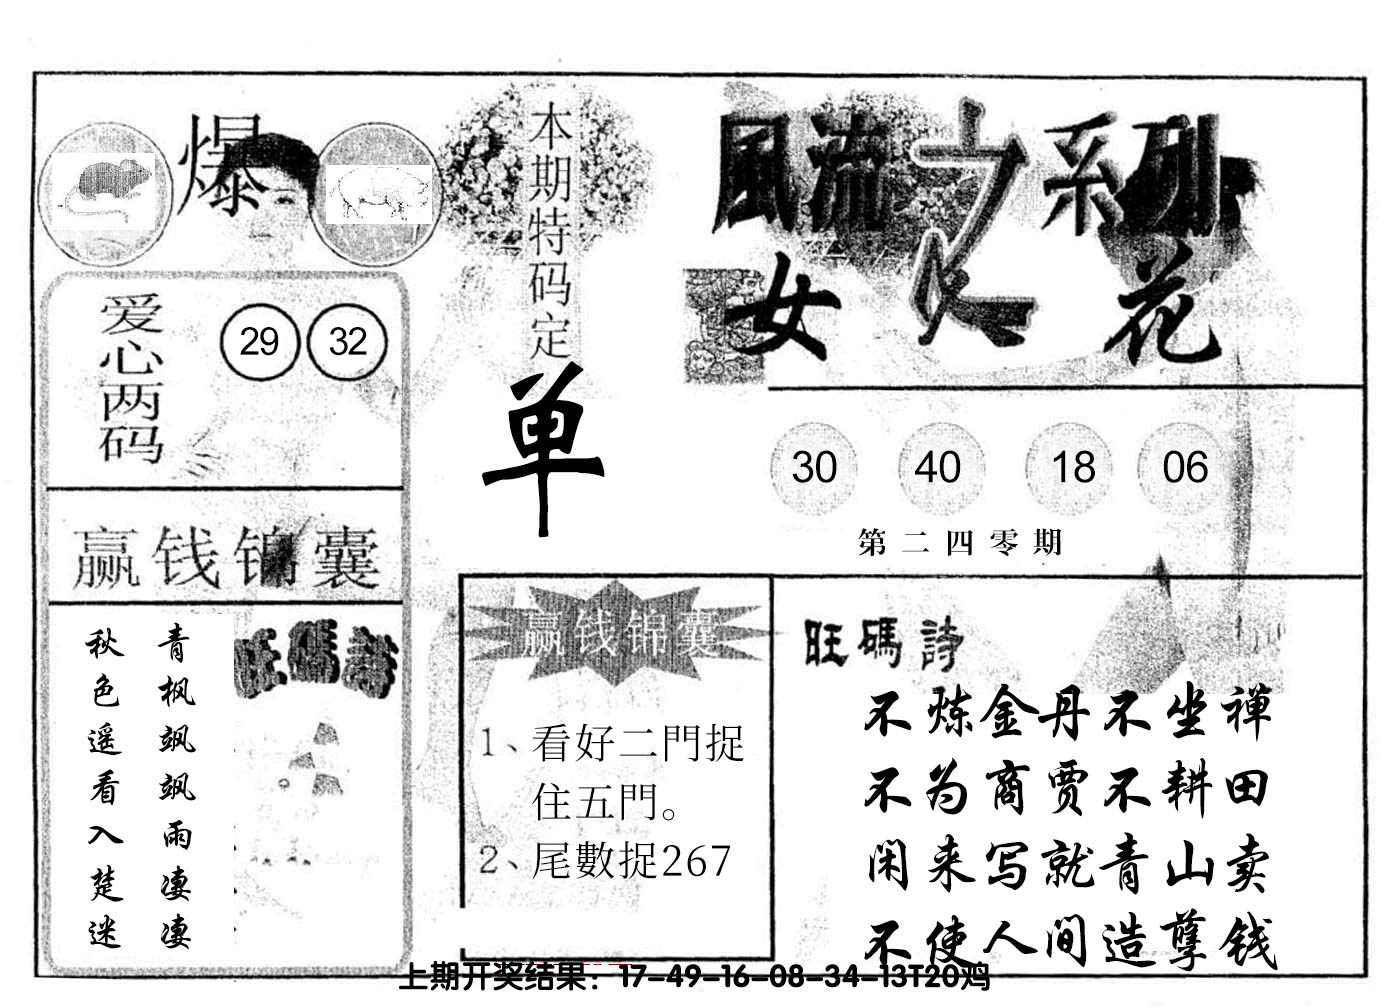 爆
爱心两码
29 32
赢钱锦囊
青枫飒飒雨凄凄
秋色遥看入楚迷
旺碼詩
本期特码定
单
風流之系列
女人花
30 40 18 06
第二四零期
赢钱锦囊
1、看好二門捉
住五門。
2、尾數捉267
旺碼詩
不炼金丹不坐禅
不为商贾不耕田
闲来写就青山卖
不使人间造孽钱
上期开奖结果：17-49-16-08-34-13T20鸡